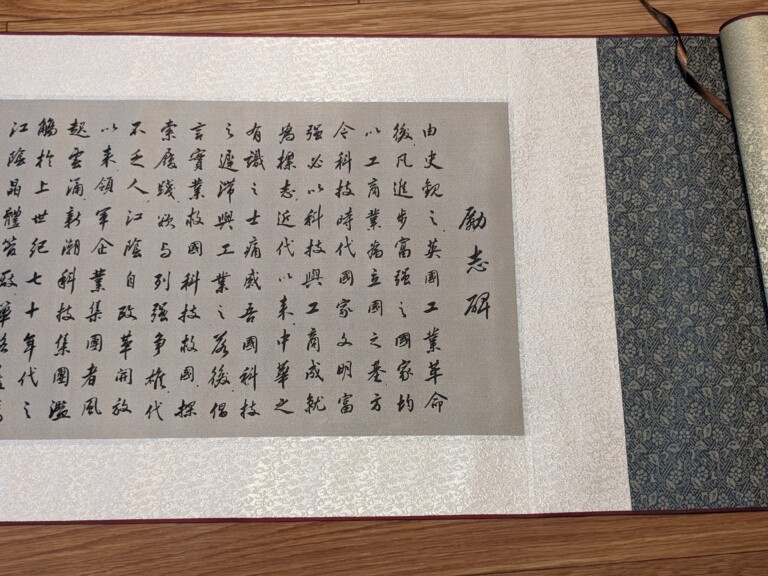 励志碑
由史觀之英國工業革命
後凡進步富强之國家均
以工商業為立國之基方
今科技時代國家文明富
强必以科技與工商成就
為標志近代以来中華之
有識之士痛感吾國科技
之遲滞與工業之落後倡
言實業救國科技救國探
索履踐欲与列强争雄代
不乏人江陰自改革開放
以来領軍企業集團者風
起雲涌新潮科技集團濫
觴於上世紀七十年代之
江陰晶體管